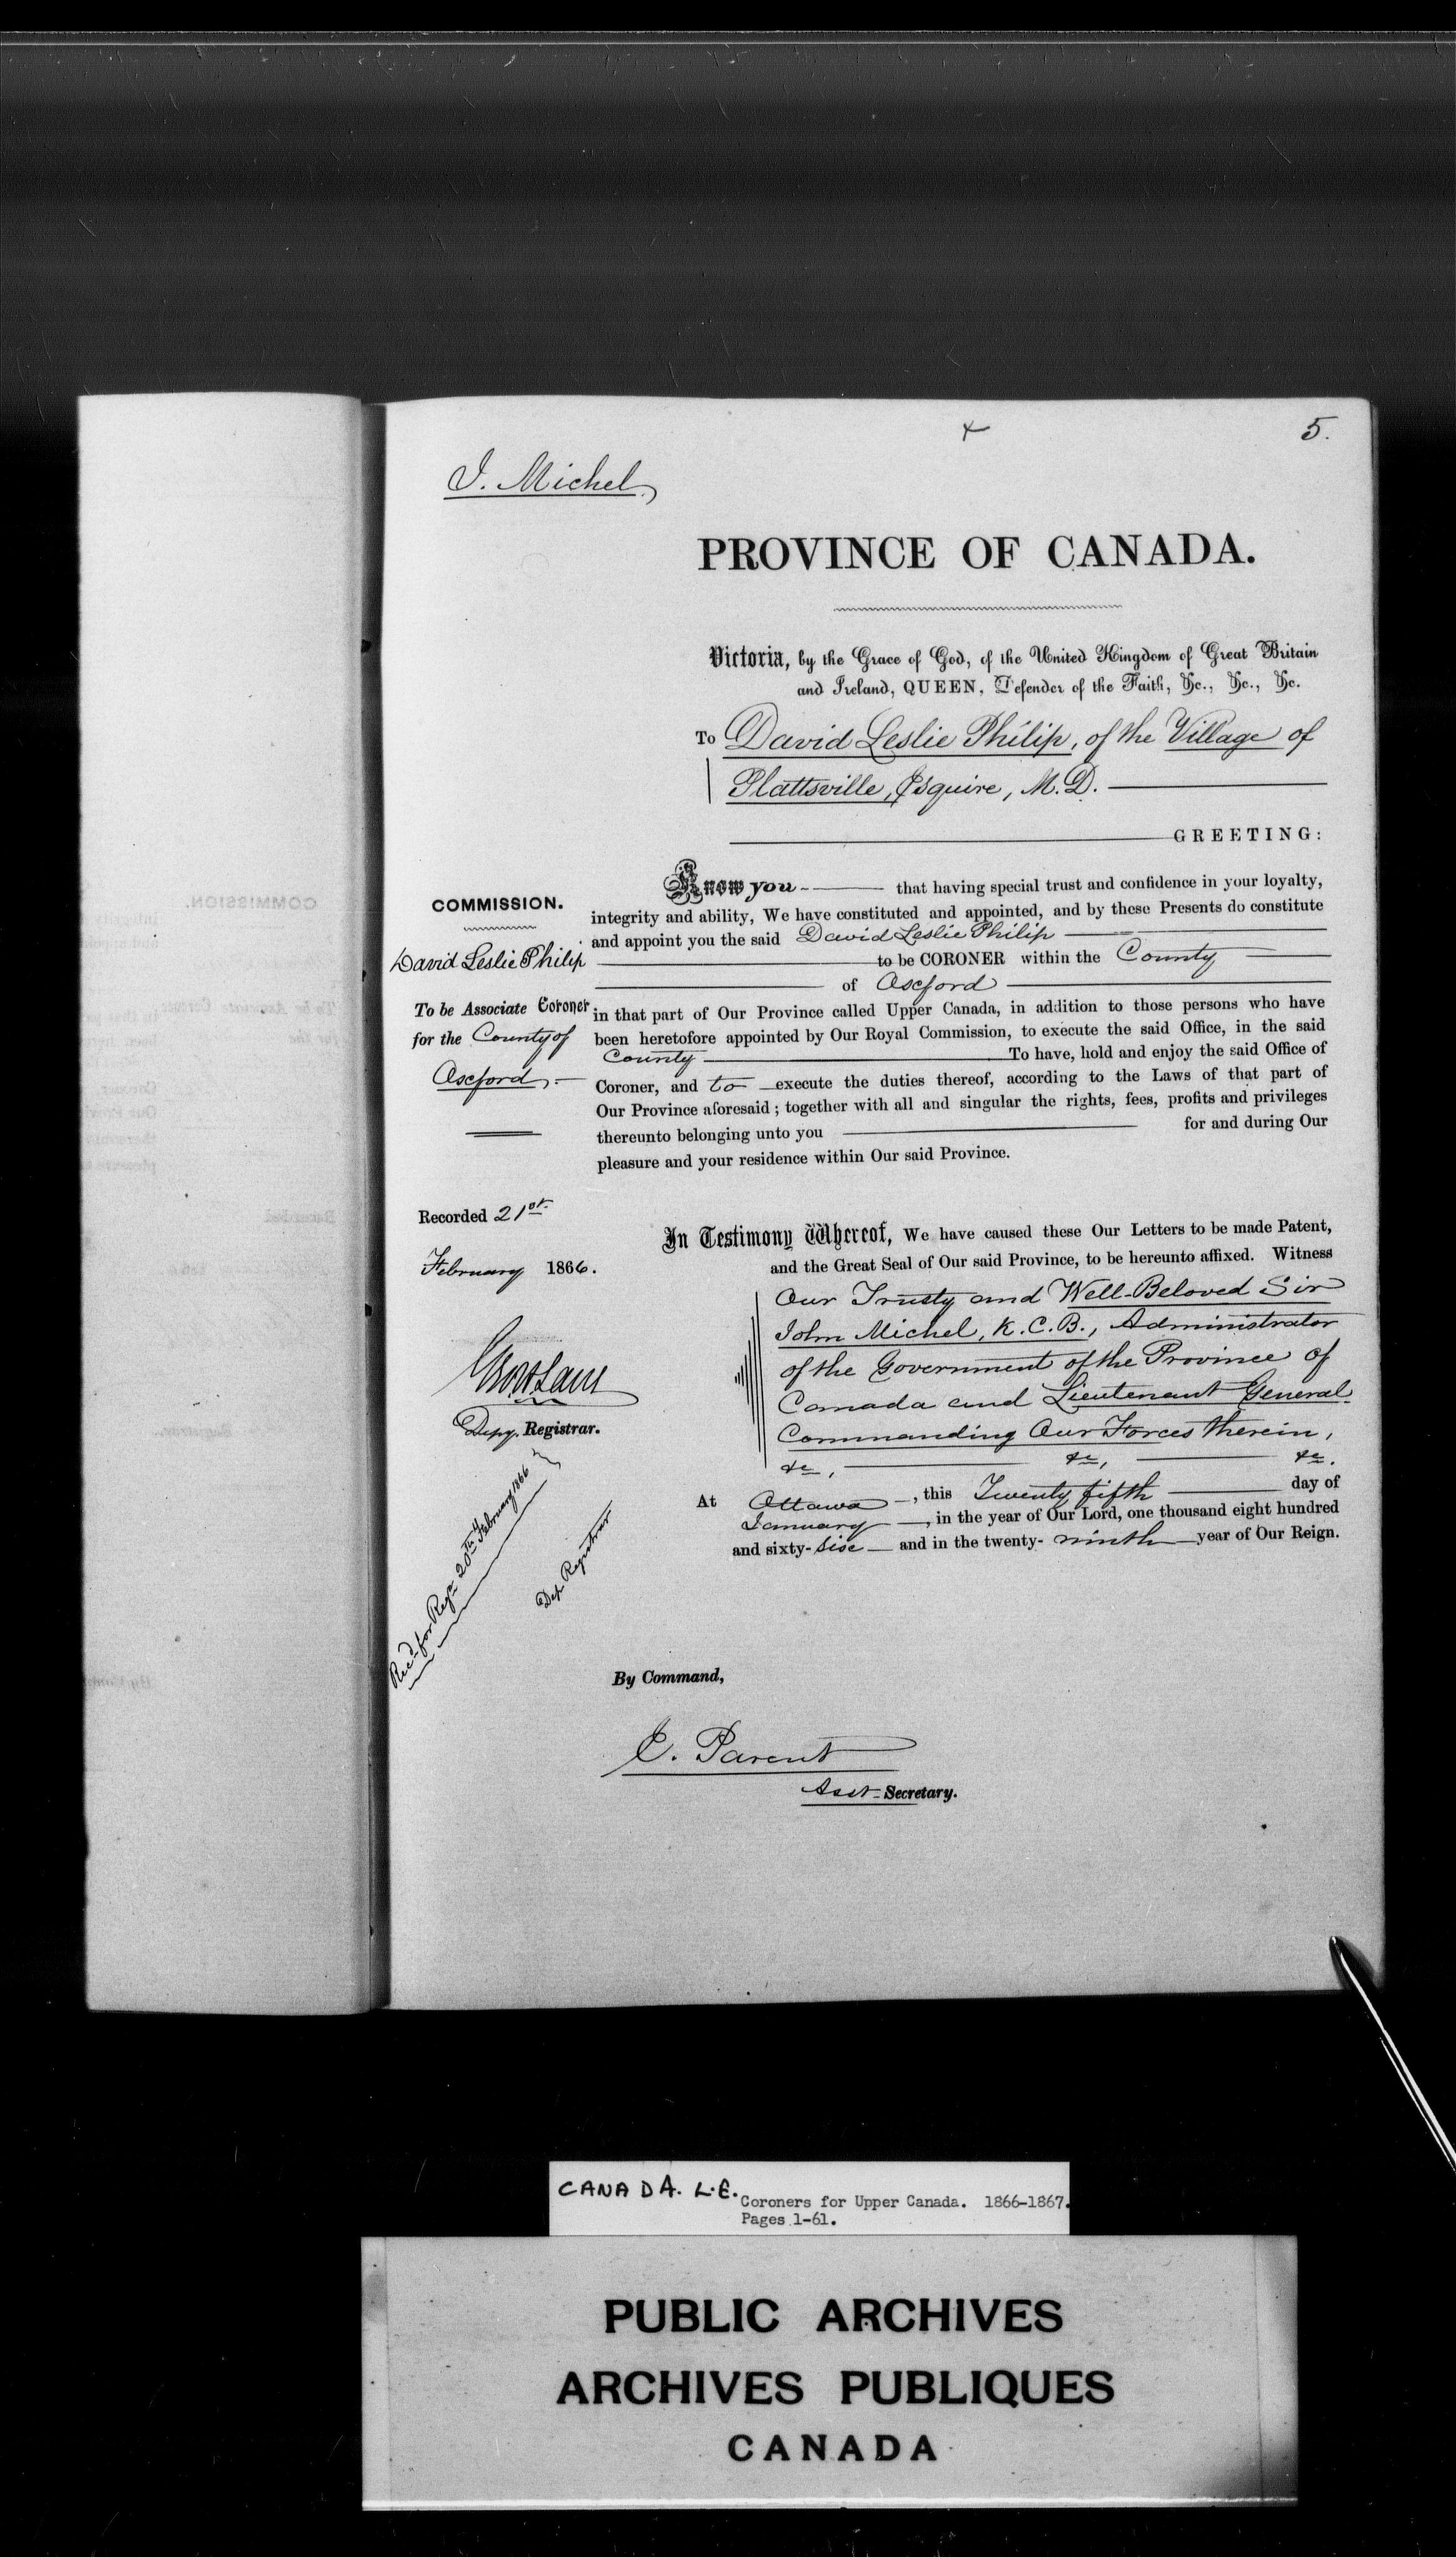 5.
J. Michel
PROVINCE OF CANADA.
Victoria, by the Grace of God, of the United Kingdom of Great Britain
and Ireland, QUEEN, Defender of the Faith, &c., &c., &c.
To David Leslie Philip, of the Village of
Plattsville, Esquire, M.D.
GREETING:
COMMISSION.
David Leslie Philip
To be Associate Coroner
for the County of
Oxford.
Know you that having special trust and confidence in your loyalty,
integrity and ability, We have constituted and appointed, and by these Presents do constitute
and appoint you the said David Leslie Philip
to be CORONER within the County
of Oxford
in that part of Our Province called Upper Canada, in addition to those persons who have
been heretofore appointed by Our Royal Commission, to execute the said Office, in the said
County To have, hold and enjoy the said Office of
Coroner, and to execute the duties thereof, according to the Laws of that part of
Our Province aforesaid; together with all and singular the rights, fees, profits and privileges
thereunto belonging unto you for and during Our
pleasure and your residence within Our said Province.
Recorded 21st
February 1866.
Depy. Registrar.
Recd for Regn 20th February 1866
Dep Registrar
In Testimony Whereof, We have caused these Our Letters to be made Patent,
and the Great Seal of Our said Province, to be hereunto affixed. Witness
Our Trusty and Well-Beloved Sir
John Michel, K.C.B., Administrator
of the Government of the Province of
Canada and Lieutenant General
Commanding Our Forces therein,
&c, &c, &c.
At Ottawa, this Twenty fifth day of
January, in the year of Our Lord, one thousand eight hundred
and sixty-six and in the twenty-ninth year of Our Reign.
By Command,
E. Parent
Asst Secretary.
CANADA. L.E.
Coroners for Upper Canada. 1866-1867.
Pages 1-61.
PUBLIC ARCHIVES
ARCHIVES PUBLIQUES
CANADA